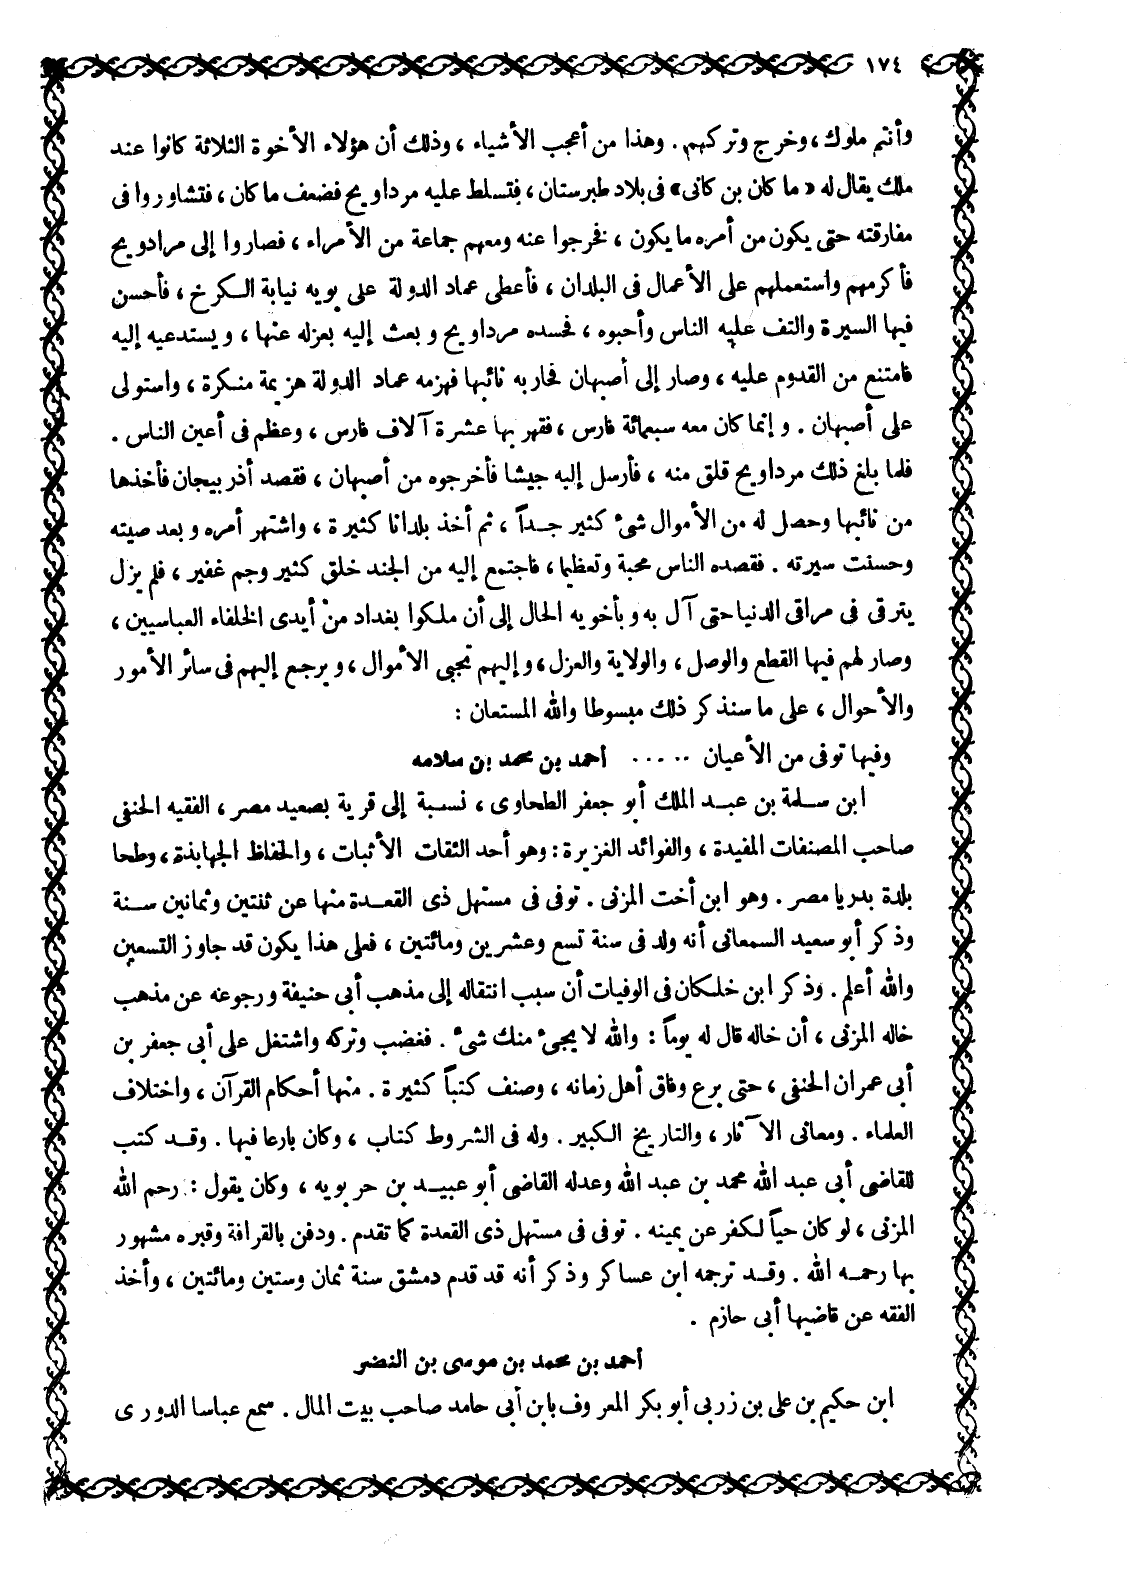 ١٧٤
وأنتم ملوك ، وخرج وتركهم . وهذا من أعجب الأشياء ، وذلك أن هؤلاء الأخوة الثلاثة كانوا عند
ملك يقال له « ما كان بن كانى » فى بلاد طبرستان ، فتسلط عليه مرداويح فضعف ما كان ، فتشاوروا فى
مفارقته حتى يكون من أمره ما يكون ، فخرجوا عنه ومعهم جماعة من الأمراء ، فصاروا إلى مرادويح
فأكرمهم واستعملهم على الأعمال فى البلدان ، فأعطى عماد الدولة على بويه نيابة الكرخ ، فأحسن
فيها السيرة والتف عليه الناس وأحبوه ، فحسده مرداويح وبعث إليه بعزله عنها ، ويستدعيه إليه
فامتنع من القدوم عليه ، وصار إلى أصبهان فحاربه نائبها فهزمه عماد الدولة هزيمة منكرة ، واستولى
على أصبهان . وإنما كان معه سبعمائة فارس ، فقهر بها عشرة آلاف فارس ، وعظم فى أعين الناس .
فلما بلغ ذلك مرداويح قلق منه ، فأرسل إليه جيشا فأخرجوه من أصبهان ، فقصد أذربيجان فأخذها
من نائبها وحصل له من الأموال شئ كثير جداً ، ثم أخذ بلدانا كثيرة ، واشتهر أمره وبعد صيته
وحسنت سيرته . فقصده الناس محبة وتعظيما ، فاجتمع إليه من الجند خلق كثير وجم غفير ، فلم يزل
يترقى فى مراقى الدنيا حتى آل به وبأخويه الحال إلى أن ملكوا بغداد من أيدى الخلفاء العباسيين ،
وصار لهم فيها القطع والوصل ، والولاية والعزل ، وإليهم تجبى الأموال ، ويرجع إليهم فى سائر الأمور
والأحوال ، على ما سنذكر ذلك مبسوطا والله المستعان :
وفيها توفى من الأعيان ..... أحمد بن محمد بن سلامه
ابن سلمة بن عبد الملك أبو جعفر الطحاوى ، نسبة إلى قرية بصعيد مصر ، الفقيه الحنفى
صاحب المصنفات المفيدة ، والفوائد الغزيرة : وهو أحد الثقات الأثبات ، والحفاظ الجهابذة ، وطحا
بلدة بديار مصر . وهو ابن أخت المزنى . توفى فى مستهل ذى القعدة منها عن ثنتين وثمانين سنة
وذكر أبو سعيد السمعانى أنه ولد فى سنة تسع وعشرين ومائتين ، فعلى هذا يكون قد جاوز التسعين
والله أعلم . وذكر ابن خلكان فى الوفيات أن سبب انتقاله إلى مذهب أبى حنيفة ورجوعه عن مذهب
خاله المزنى ، أن خاله قال له يوماً : والله لا يجئ منك شئ . فغضب وتركه واشتغل على أبى جعفر بن
أبى عمران الحنفى ، حتى برع وفاق أهل زمانه ، وصنف كتباً كثيرة . منها أحكام القرآن ، واختلاف
العلماء . ومعانى الآثار ، والتاريخ الكبير . وله فى الشروط كتاب ، وكان بارعا فيها . وقد كتب
للقاضى أبى عبد الله محمد بن عبد الله وعدله القاضى أبو عبيد بن حربويه ، وكان يقول : رحم الله
المزنى ، لو كان حياً لكفر عن يمينه . توفى فى مستهل ذى القعدة كما تقدم . ودفن بالقرافة وقبره مشهور
بها رحمه الله . وقد ترجمه ابن عساكر وذكر أنه قد قدم دمشق سنة ثمان وستين ومائتين ، وأخذ
الفقه عن قاضيها أبى حازم .
أحمد بن محمد بن موسى بن النضر
ابن حكيم بن على بن زربى أبو بكر المعروف بابن أبى حامد صاحب بيت المال . سمع عباسا الدورى